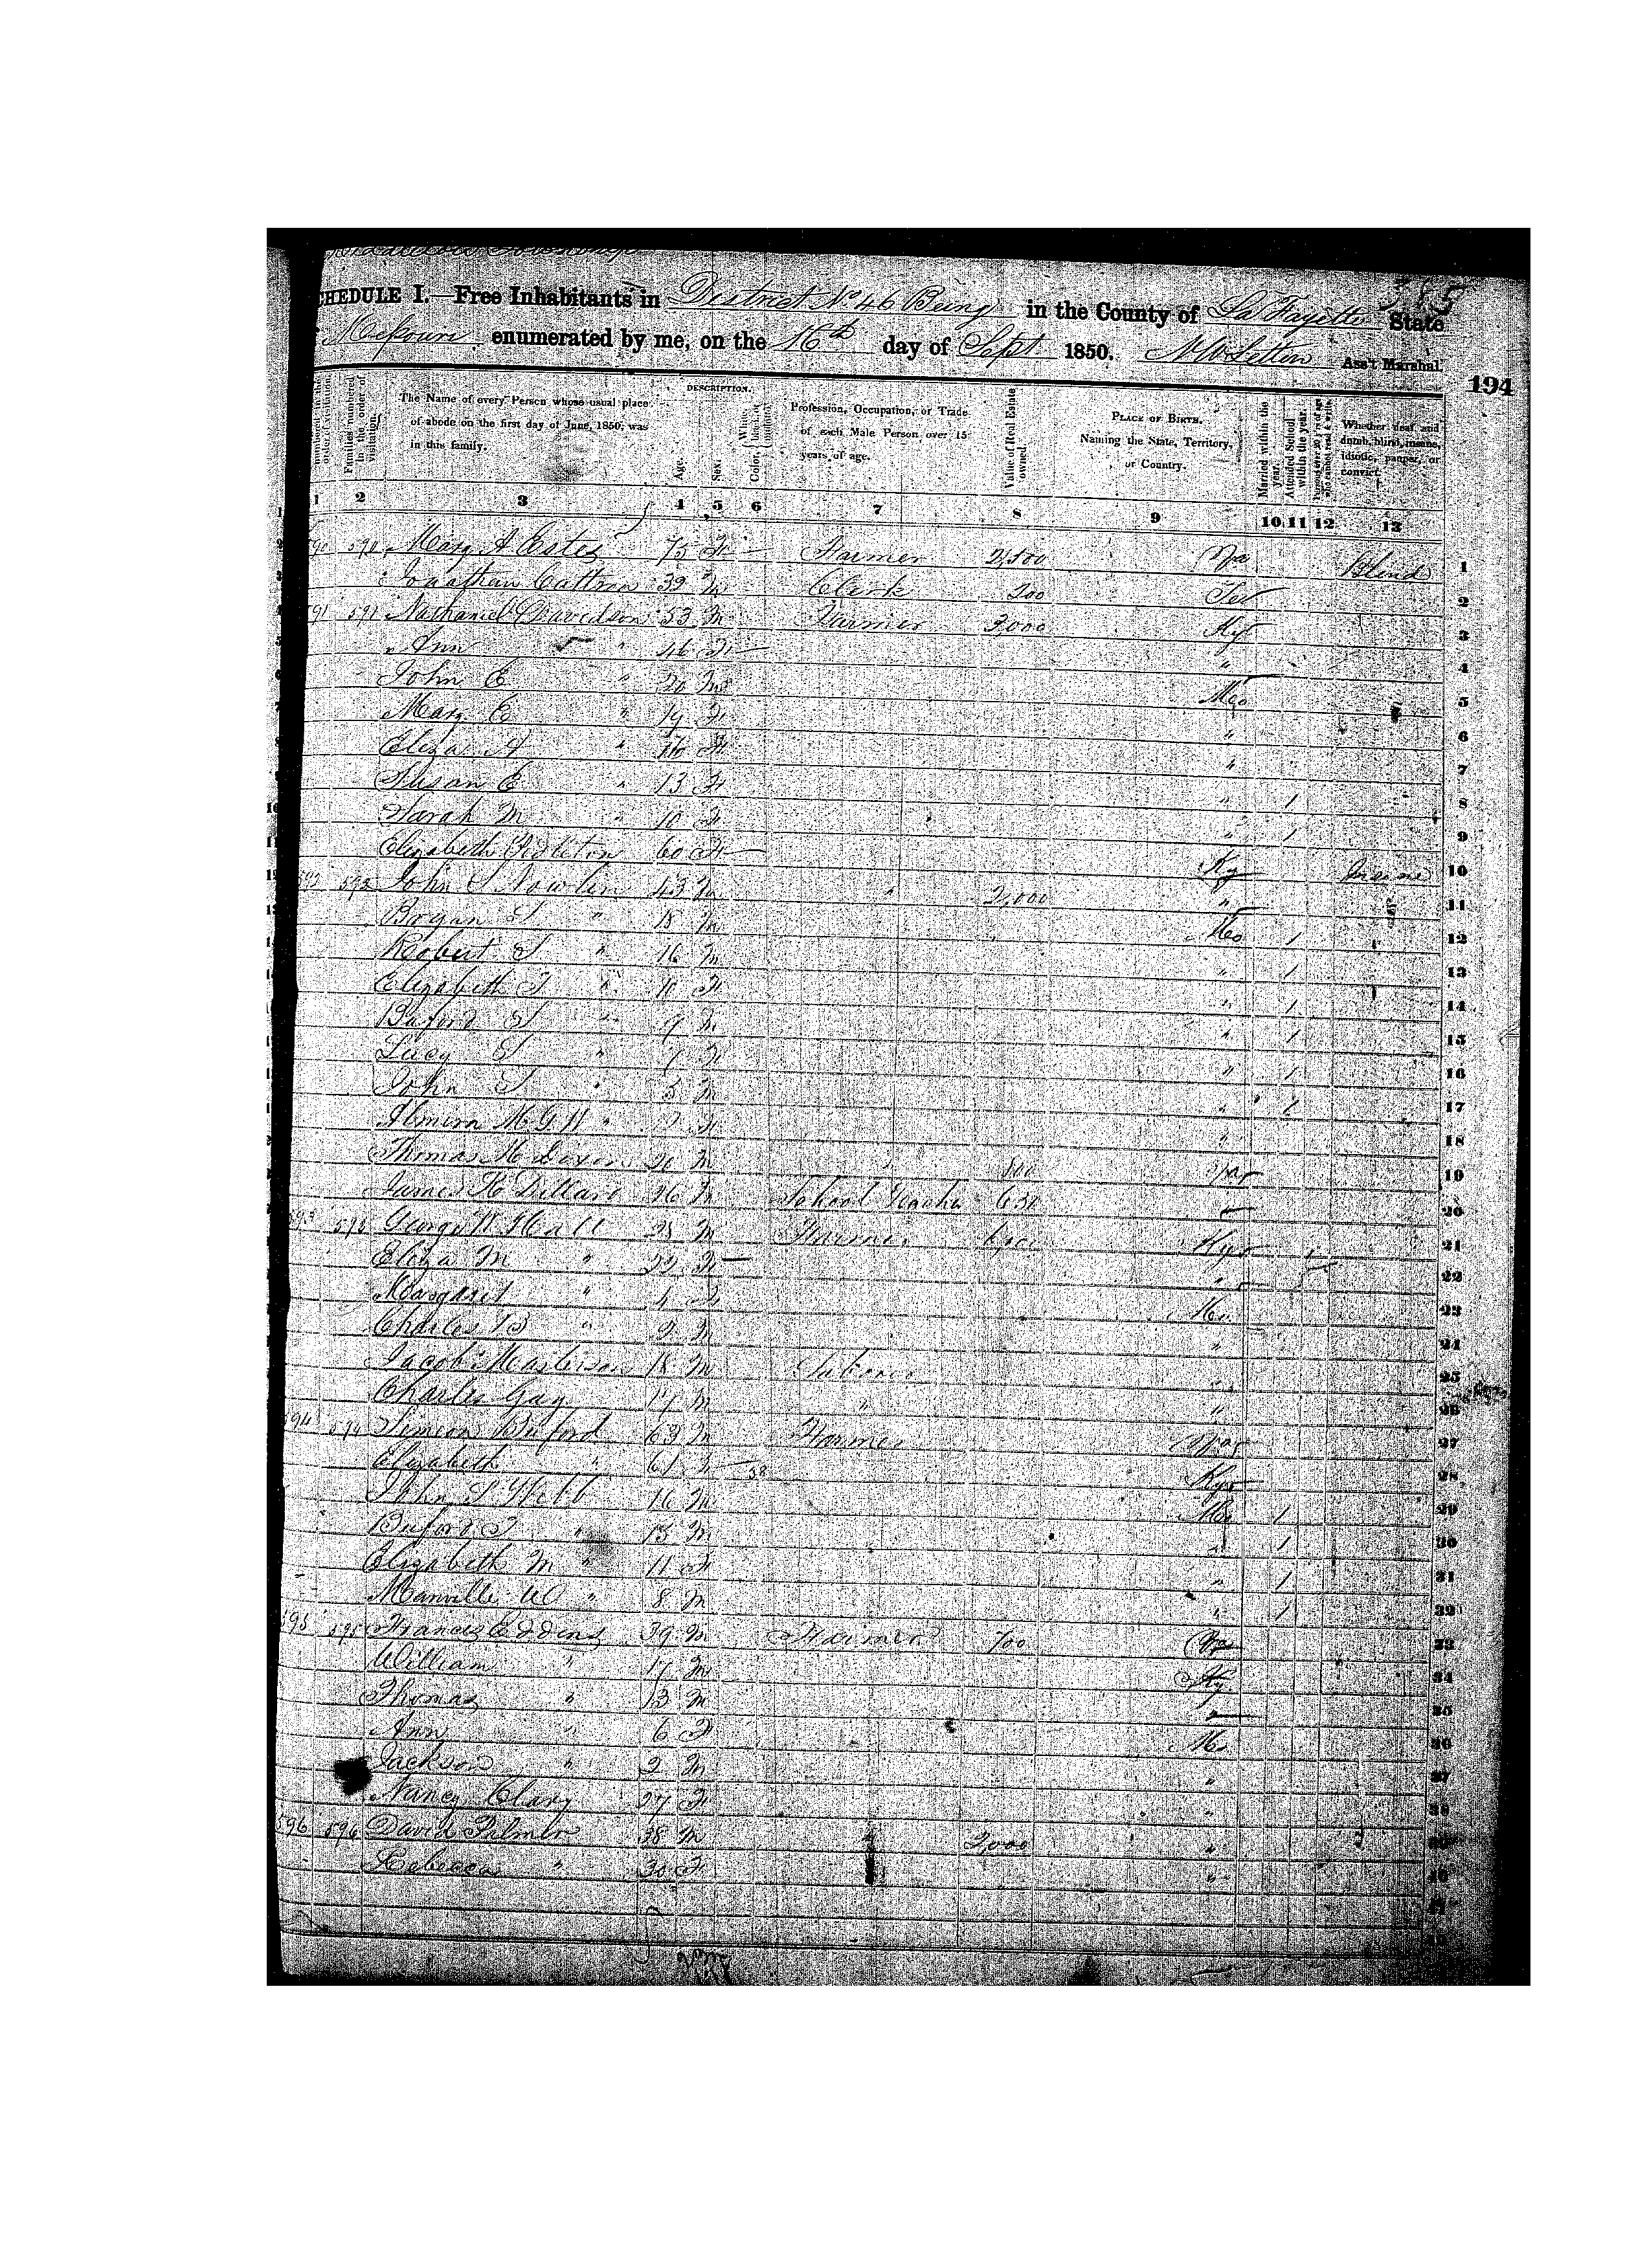 385
SCHEDULE I.—Free Inhabitants in District No 46 Being in the County of La Fayette State
Missouri enumerated by me, on the 16th day of Sept 1850. Ass't Marshal.
194
The Name of every Person whose usual place of abode on the first day of June, 1850, was in this family.
DESCRIPTION.
Age.
Sex.
Profession, Occupation, or Trade of each Male Person over 15 years of age.
Value of Real Estate owned.
PLACE OF BIRTH. Naming the State, Territory, or Country.
Married within the year.
Attended School within the year.
Whether deaf and dumb, blind, insane, idiotic, pauper, or convict.
1 2 3 4 5 6 7 8 9 10 11 12 13
590 Mary A Estes 75 F Farmer 2,500 Va Blind 1
Jonathan Cattron 39 M Clerk 200 Ten 2
591 591 Nathaniel Davidson 53 M Farmer 3,000 Ky 3
Ann " 46 F " 4
John E " 20 M Mo 5
Mary E " 19 F " 6
Eliza A " 16 F " 7
Susan E " 13 F " 1 8
Sarah M " 10 F " 1 9
Elizabeth 60 F Ky Insane 10
592 592 John S Nowlin 43 M " 2,000 " 11
Bryan S " 18 M Mo 1 12
Robert S " 16 M " 1 13
Elizabeth T " 10 F " 1 14
Buford S " 9 M " 1 15
Lucy S " 7 F " 1 16
John S " 5 M " 1 17
M " F " 18
Thomas M Dixon 20 M " 800 Va 19
James H Dillard 26 M School Teacher 630 20
593 593 George W Hall 28 M Farmer Ky 21
Eliza M " 22 F " 22
Margaret " 4 F Mo 23
Charles B " 2 M " 24
Jacob Masterson 18 M " 25
Charles Gay 17 M " " 26
594 594 Simeon Buford 63 M Farmer Va 27
Elizabeth " 61 F Ky 28
John S Webb 16 M Mo 1 29
Buford T " 13 M " 1 30
Elizabeth M " 11 F " 1 31
Manville W " 8 M " 1 32
595 595 Francis Eddins 39 M Farmer 700 Va 33
William " 17 M Ky 34
Thomas " 13 M " 35
Ann " 6 F Mo 36
Jackson " 2 M " 37
Nancy Clary 27 F " 38
596 596 David 38 M " 2,000 " 39
Rebecca " 30 F " 40
41
42